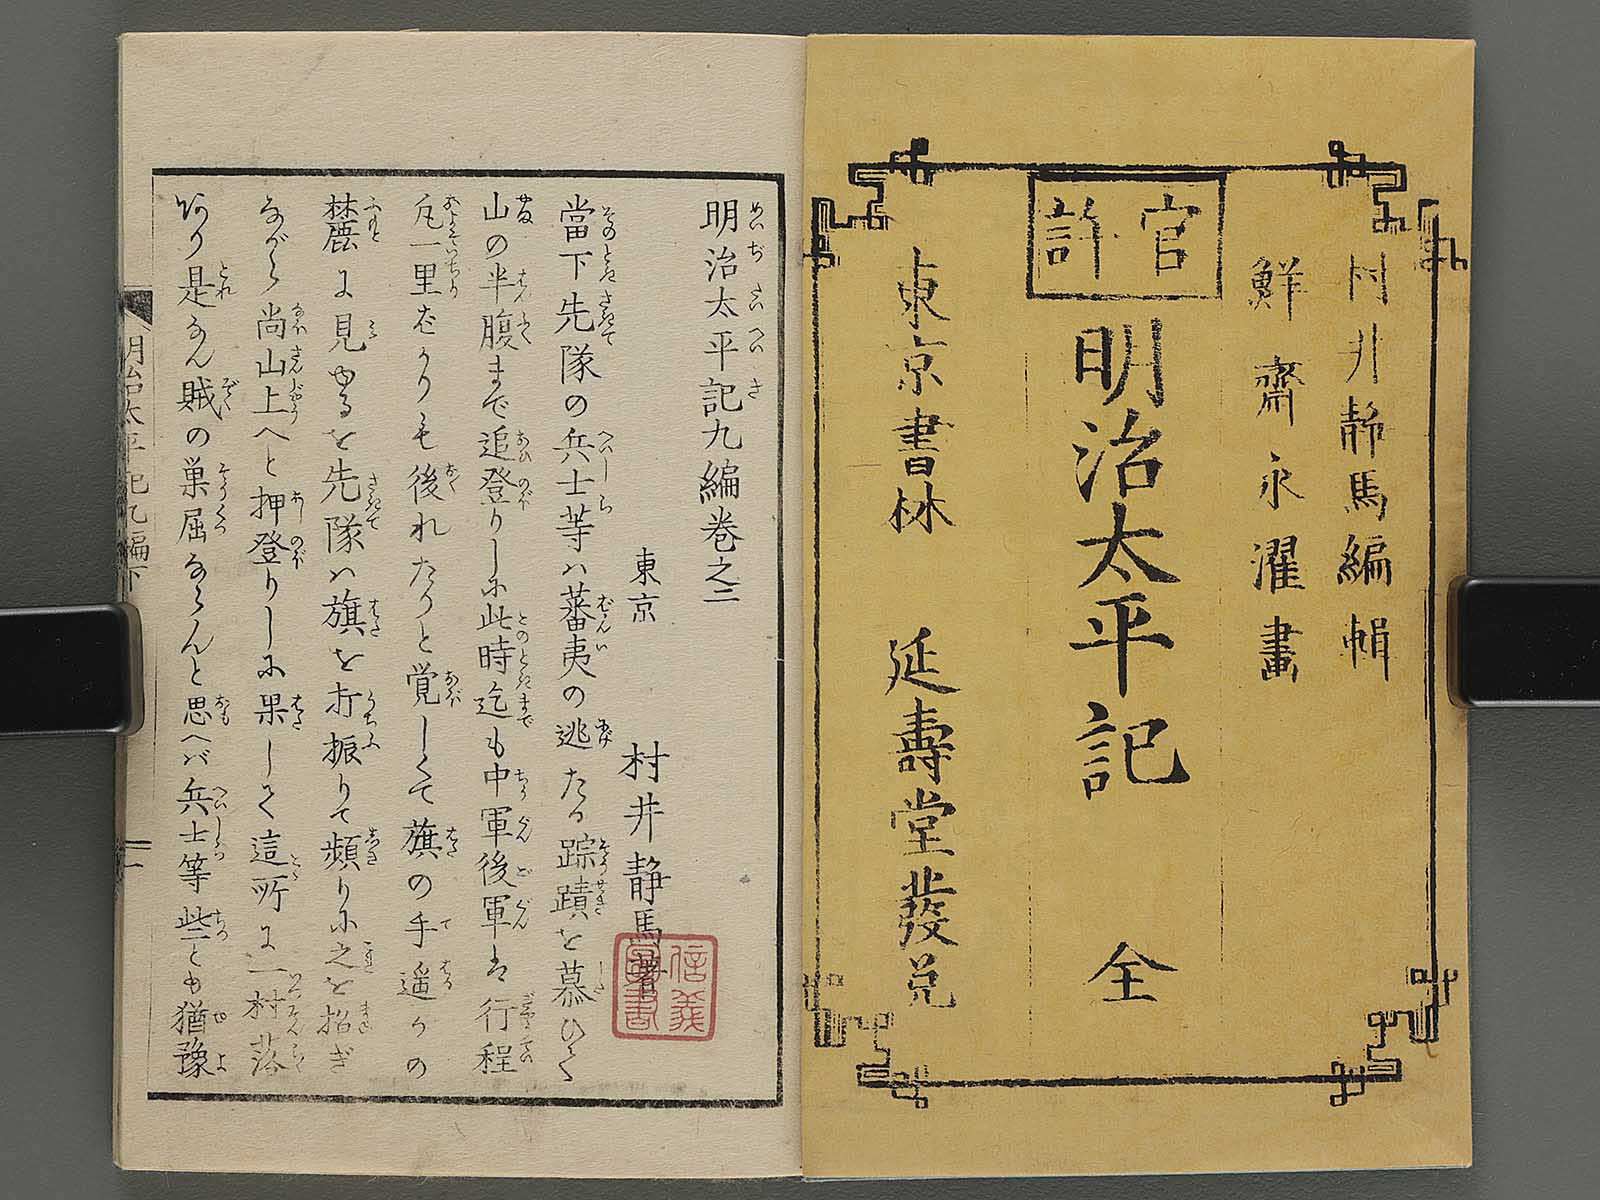 村井静馬編輯
鮮齋永濯畫
官許
明治太平記 全
東京書林 延壽堂發兌
明治太平記九編巻之二
東京 村井静馬著
信義
當下先隊の兵士等ハ蕃夷の逃たる踪蹟を慕ひて
山の半腹まで追登りしに此時迄も中軍後軍は行程
凡一里ばかりも後れたりと覚しくて旗の手遥かの
麓に見ゆるを先隊ハ旗を打振りて頻りに之を招ぎ
ながら尚山上へと押登りしに果して這所に一村落
あり是なん賊の巣屈ならんと思へバ兵士等些とも猶豫
明治太平記九編下
一